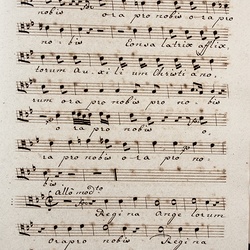 nobis ora pro nobis ora pro
no - bis Consolatrix afflic
torum Au - xi li um Christi a no.
rum ora pro nobis pro no - bis
o ra pro nobis o.
ra pro nobis o - ra pro no:
bis
Allo modto
Regina Ange lorum
ora pro nobis Regina